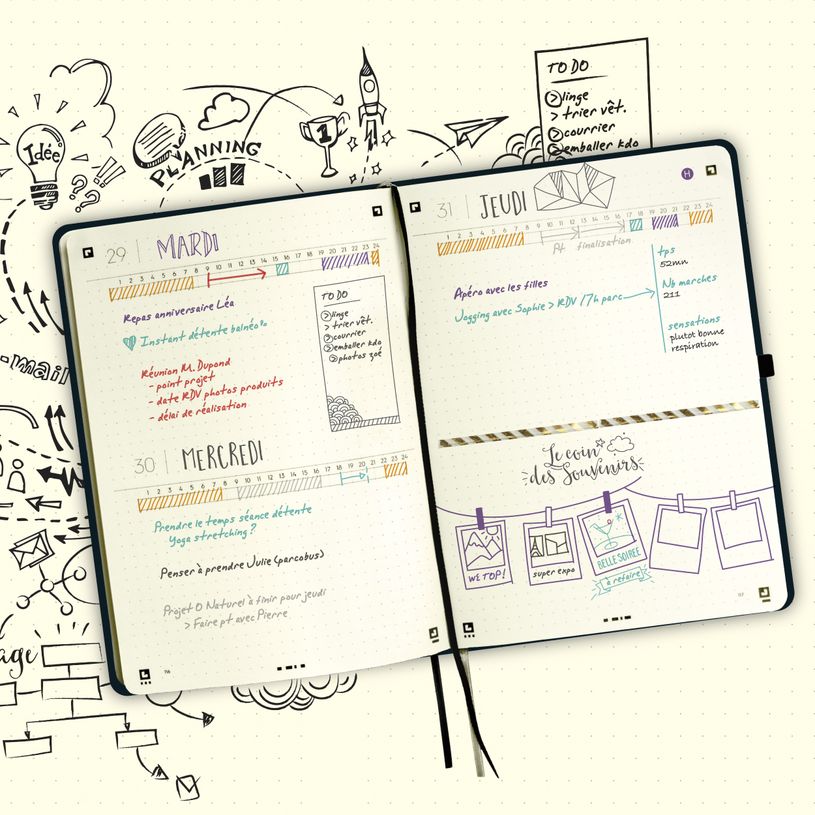 Idée
PLANNING
1
TO DO
linge
> trier vêt.
courrier
emballer kdo
e-mail
29 MARDI
1 2 3 4 5 6 7 8 9 10 11 12 13 14 15 16 17 18 19 20 21 22 23 24
Repas anniversaire Léa
Instant détente balnéo
Réunion M. Dupond
- point projet
- date RDV photos produits
- délai de réalisation
TO DO
linge
> trier vêt.
courrier
emballer kdo
photos zoé
30 MERCREDI
1 2 3 4 5 6 7 8 9 10 11 12 13 14 15 16 17 18 19 20 21 22 23 24
Prendre le temps séance détente
Yoga stretching ?
Penser à prendre Julie (parcobus)
Projet O Naturel à finir pour jeudi
> Faire pt avec Pierre
31 JEUDI
H
1 2 3 4 5 6 7 8 9 10 11 12 13 14 15 16 17 18 19 20 21 22 23 24
Pt finalisation
Apéro avec les filles
Jogging avec Sophie > RDV 17h parc
tps
52mn
Nb marches
211
sensations
plutot bonne
respiration
Le coin
des Souvenirs
WE TOP !
super expo
BELLE SOIREE
à refaire
age